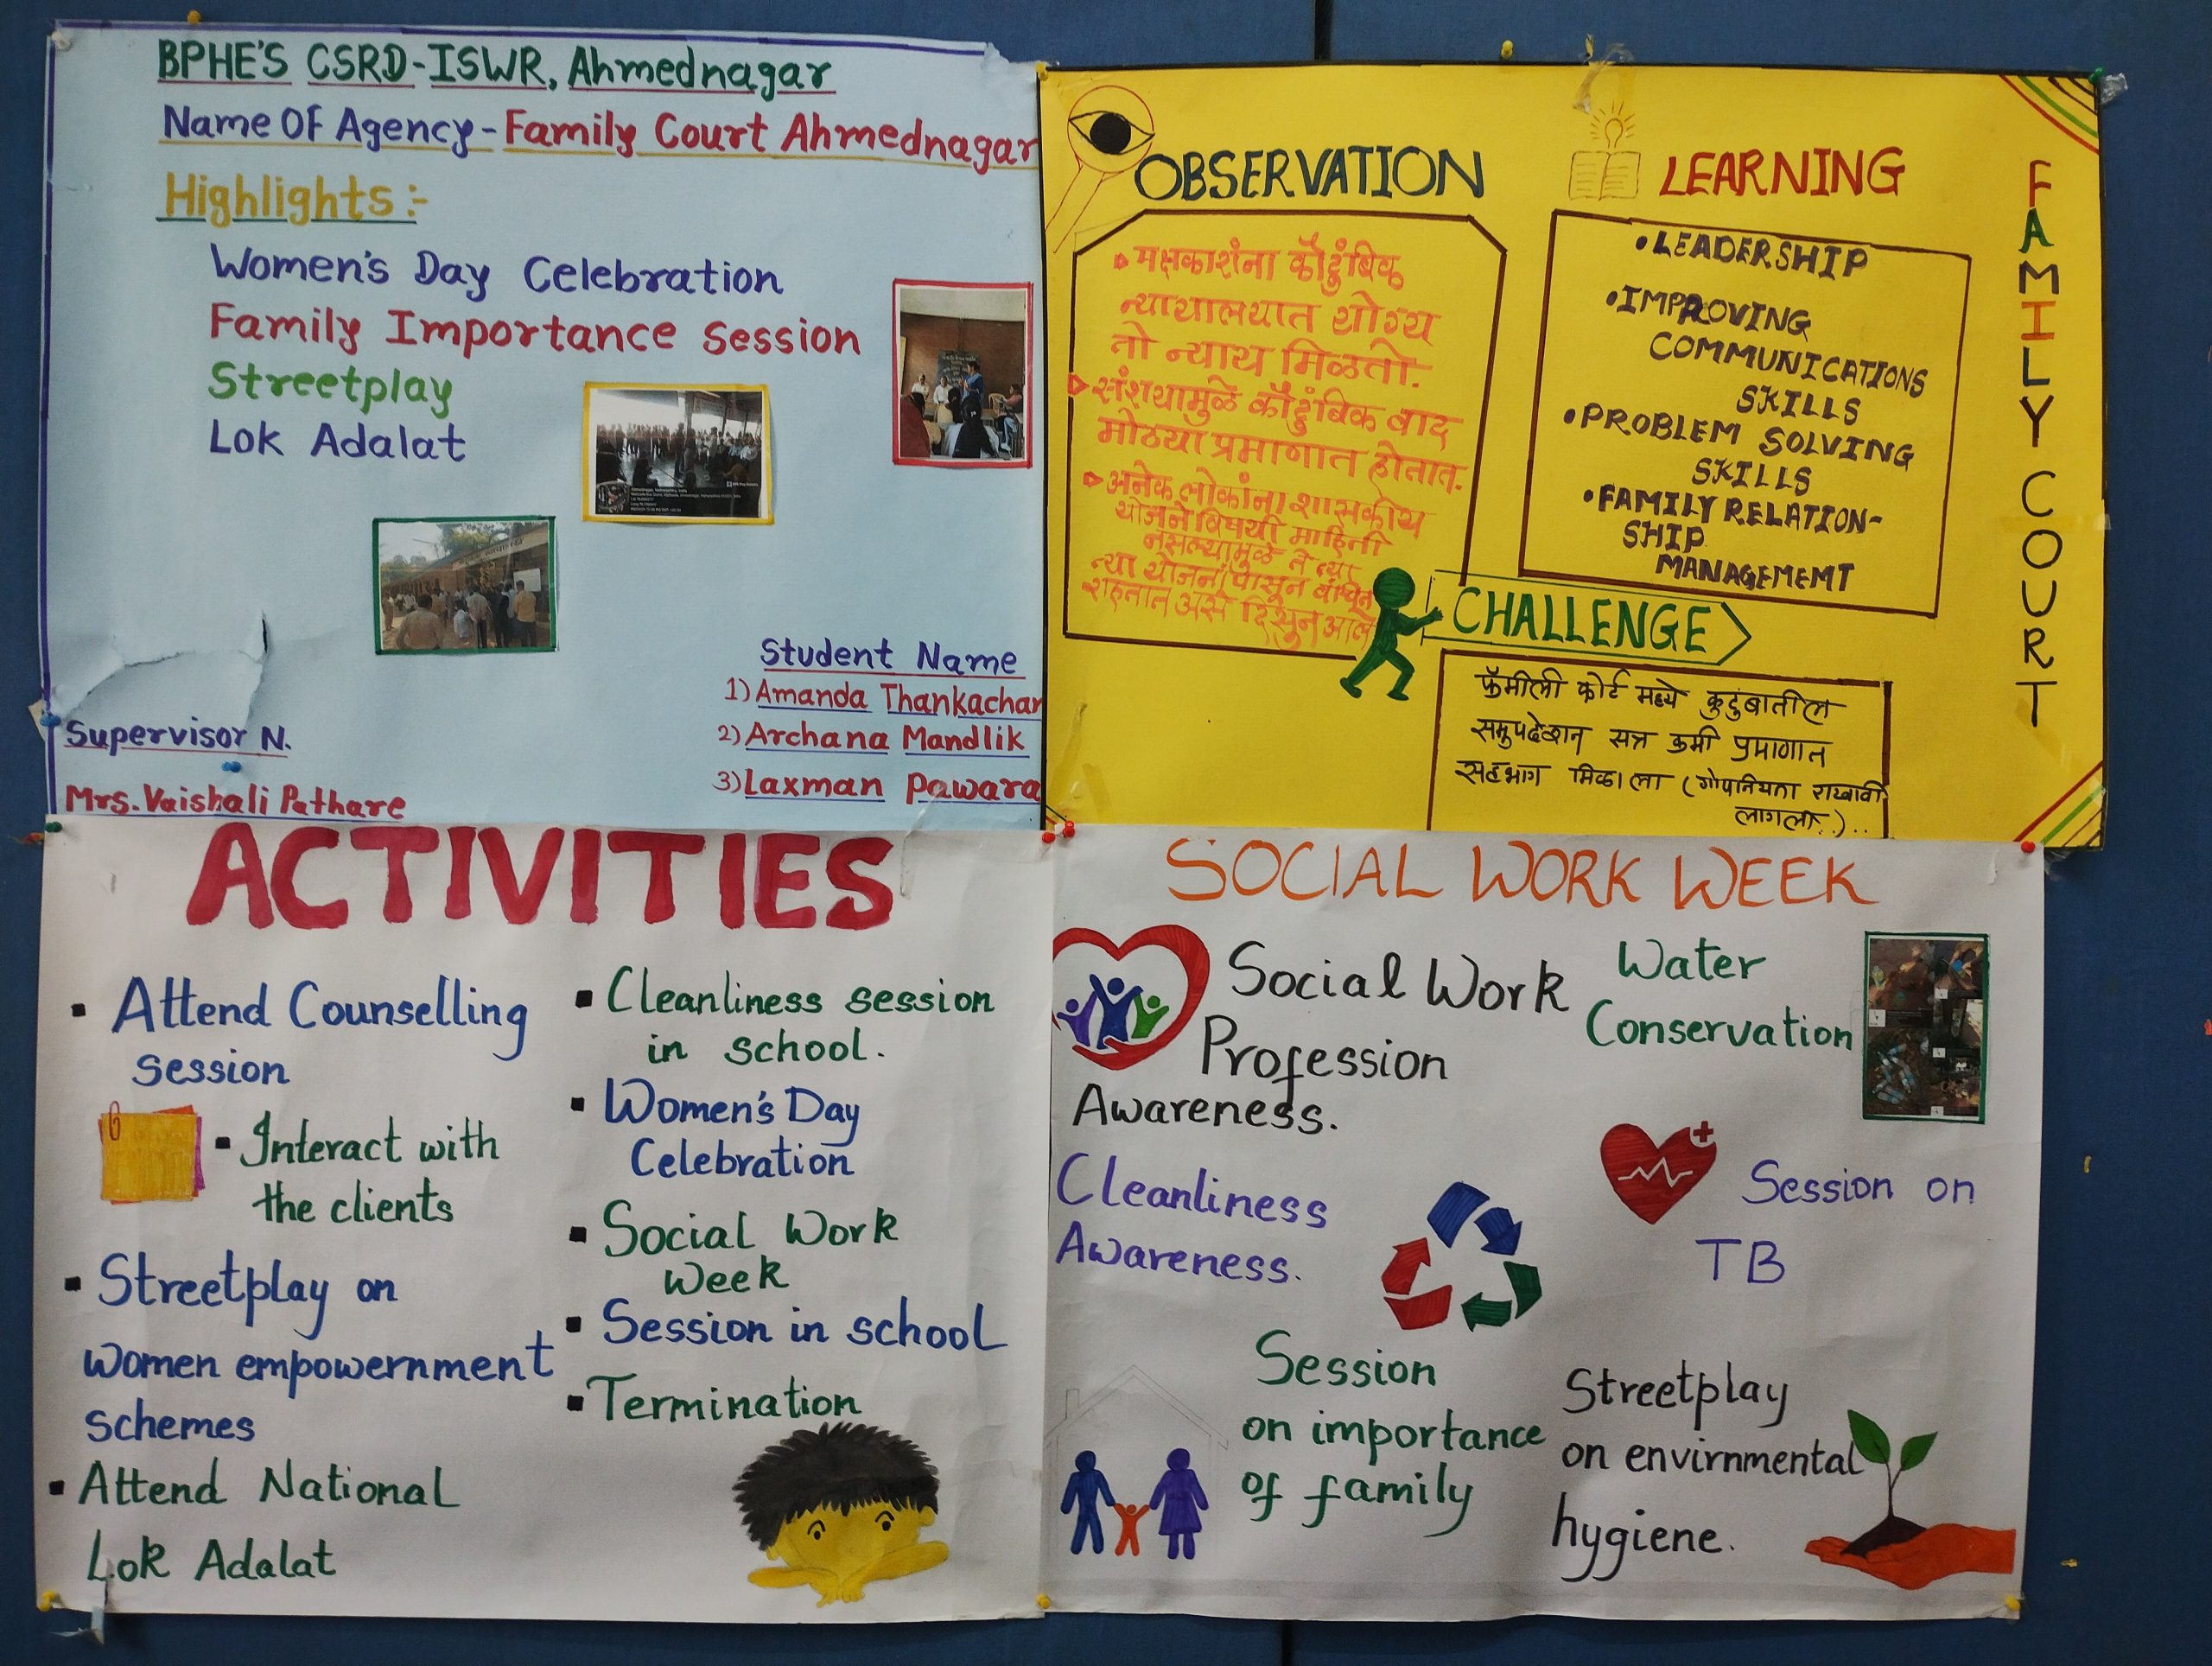 BPHE'S CSRD-ISWR, Ahmednagar
Name OF Agency-Family Court Ahmednagar
Highlights:-
Women's Day Celebration
Family Importance session
Streetplay
Lok Adalat
Student Name
1) Amanda Thankachan
2) Archana Mandlik
3) Laxman Pawara
Supervisor N.
Mrs. Vaishali Pathare
OBSERVATION
पक्षकारांना कौटुंबिक
न्यायालयात योग्य
तो न्याय मिळतो.
संशयामुळे कौटुंबिक वाद
मोठया प्रमाणात होतात.
अनेक लोकांना शासकीय
योजने विषयी माहिती
नसल्यामुळे ते त्या
त्या योजनां पासून वंचित
राहतात असे दिसुन आले
LEARNING
•LEADERSHIP
•IMPROVING
COMMUNICATIONS
SKILLS
•PROBLEM SOLVING
SKILLS
•FAMILY RELATION-
SHIP
MANAGEMEMT
CHALLENGE
फॅमीली कोर्ट मध्ये कुटुंबातील
समुपदेशन सत्र कमी प्रमाणात
सहभाग मिळाला (गोपनियता राखावी
लागली..)..
FAMILY COURT
ACTIVITIES
▪ Attend Counselling
session
▪ Interact with
the clients
▪ Streetplay on
women empowernment
schemes
▪ Attend National
Lok Adalat
▪ Cleanliness session
in school.
▪ Women's Day
Celebration
▪ Social Work
week
▪ Session in school
▪ Termination
SOCIAL WORK WEEK
Social Work
Profession
Awareness.
Water
Conservation
Cleanliness
Awareness.
Session on
TB
Session
on importance
of family
Streetplay
on envirnmental
hygiene.